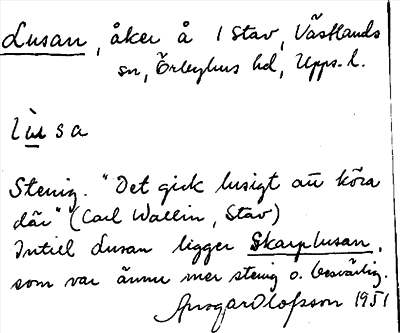 Lusan, åker å 1 Stav, Västlands
sn, Örbyhus hd, Upps. l.
lùsa
Stenig. "Det gick lusigt att köra
där" (Carl Wallin, Stav)
Intill Lusan ligger Skarplusan,
som var ännu mer stenig o. besvärlig.
Ansgar Olofsson 1951